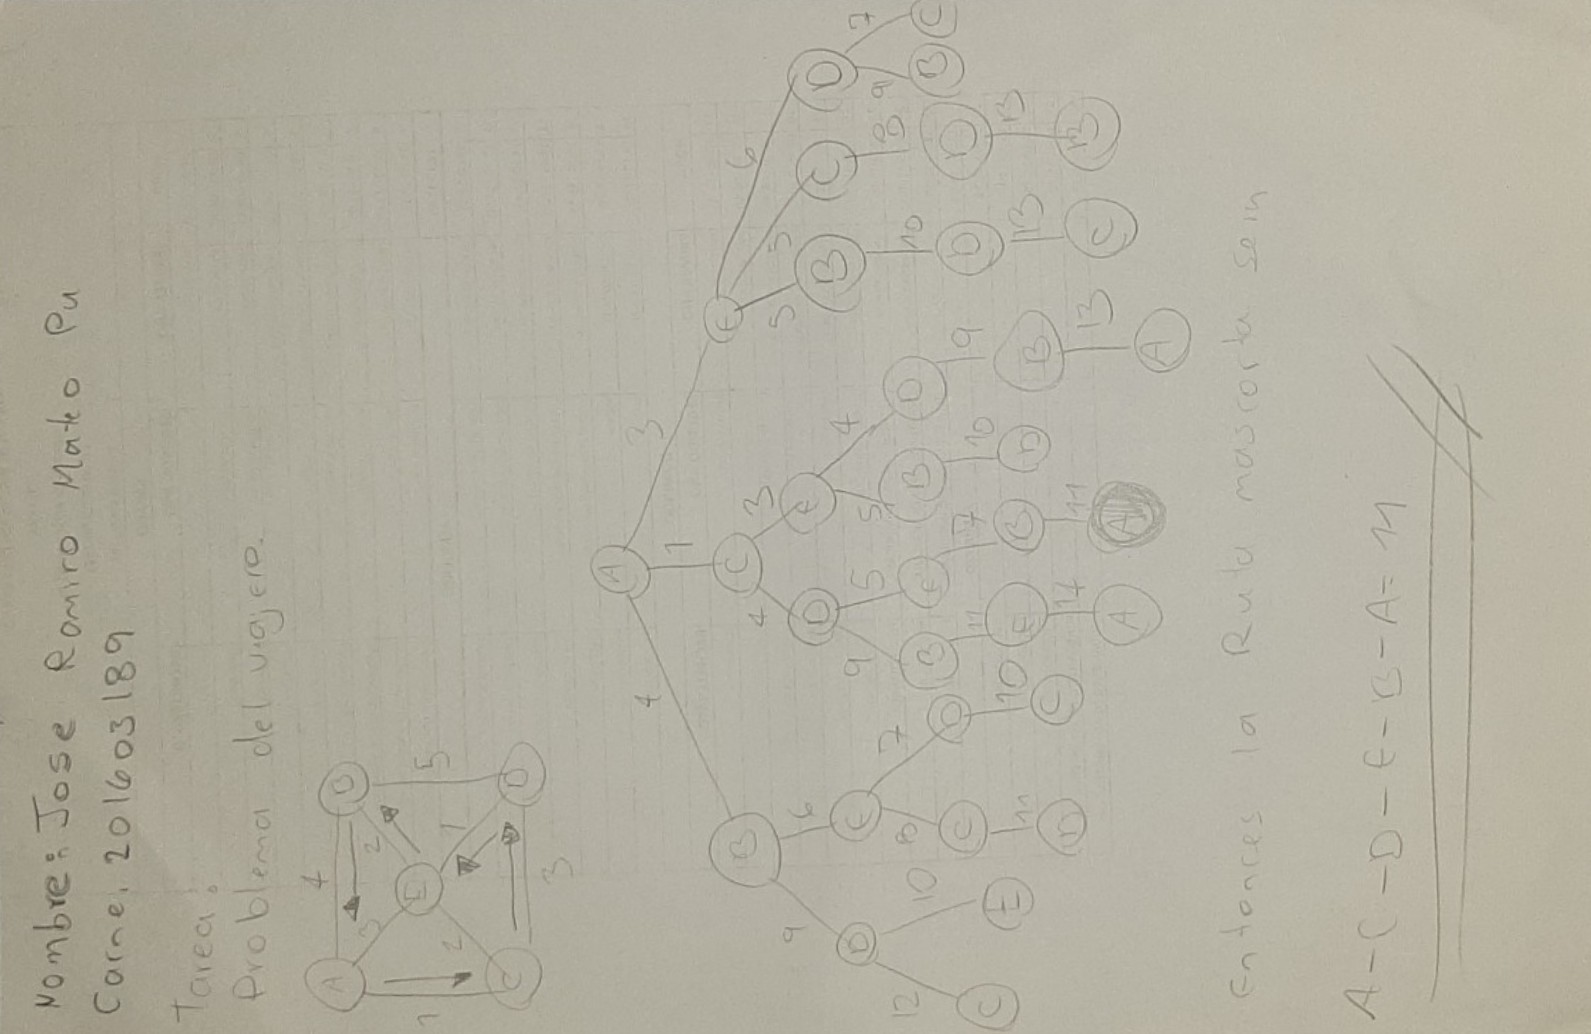 Nombre: Jose Ramiro Mateo Pu
Carne. 201603189
Tarea:
Problema del viajero.
4
A B
3 2
E
1 5
2 1
C D
3
A
4 1 3
B C E
9 6 4 3 5 5 6
D E D E B C D
12 10 8 7 9 5 5 4 10 8 9 7
C E C D B E B D D D B C
11 10 11 7 10 9 13 13
D C E B D B C B
17 11 13
A A A
Entonces la Ruta mas corta sein
A-C-D-E-B-A= 11